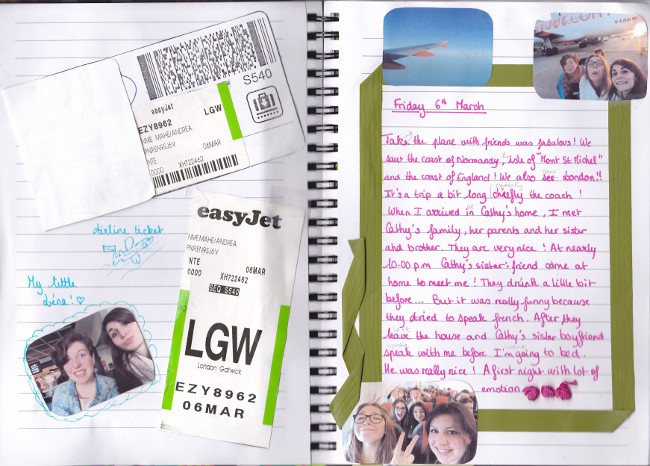 S540
easyJet
LGW
EZY8962
NME MAHE/ANDREA
PNRENR9J6V
NTE
06MAR
0000 XH722462
airline ticket
My little
Léna! ♡
easyJet
NMEMAHE/ANDREA
PNRENR9J6V
NTE 06MAR
0000 XH722462
SEQ S540
LGW
London Gatwick
EZY8962
06MAR
Friday 6th March
Take the plane with friends was fabulous! We
saw the coast of Normandy, isle of "Mont St Michel"
and the coast of England! We also see London!!
It's a trip a bit long, chiefly the coach!
When I arrived in Cathy's home, I met
Cathy's family, her parents and her sister
and brother. They are very nice! At nearly
10:00 pm Cathy's sister's friend came at
home to meet me! They drunk a little bit
before... But it was really funny because
they tried to speak french. After they
leave the house and Cathy's sister boyfriend
speak with me before I'm going to bed.
He was really nice! A first night with lot of
emotion